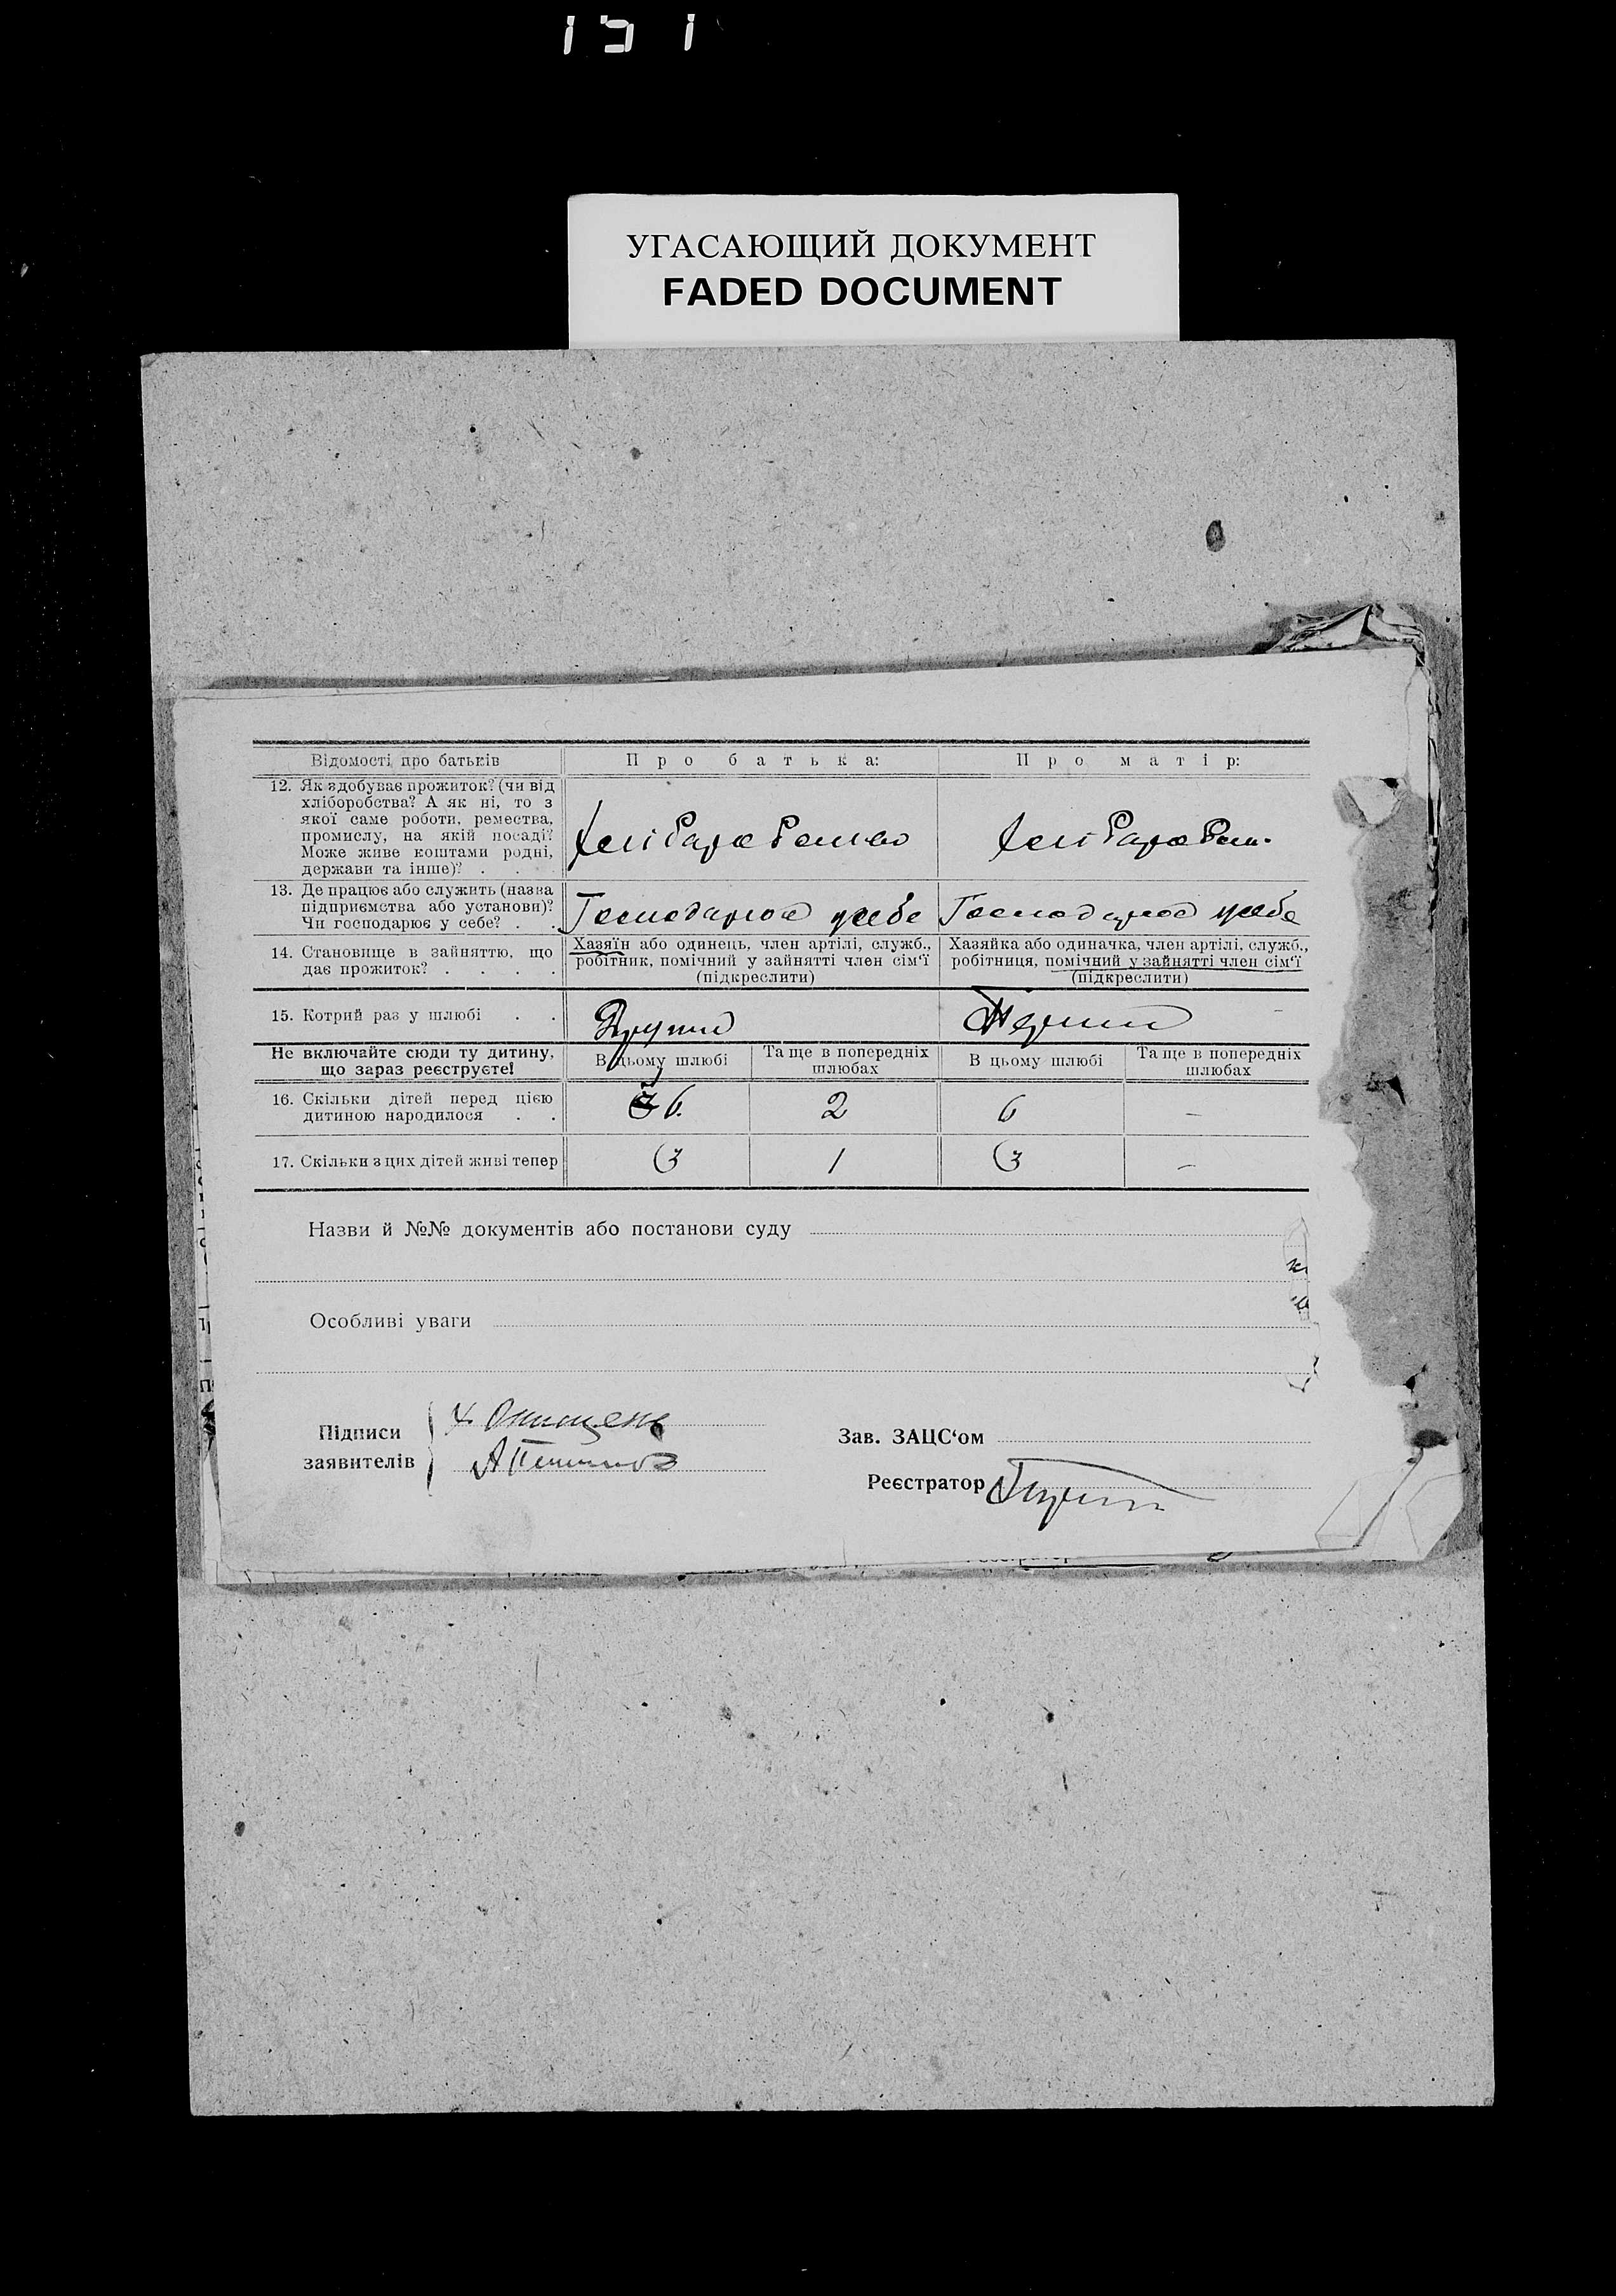 УГАСАЮЩИЙ ДОКУМЕНТ
FADED DOCUMENT
Відомості про батьків
Про батька:
Про матір:
12. Як здобуває прожиток? (чи від
хліборобства? А як ні, то з
якої саме роботи, ремества,
промислу, на якій посаді?
Може живе коштами родні,
держави та інше)? . . .
13. Де працює або служить (назва
підприємства або установи)?
Чи господарює у себе? . .
Господарює у себе
Господарює у себе
14. Становище в зайняттю, що
дає прожиток? . . . .
Хазяїн або одинець, член артілі, служб.,
робітник, помічний у зайнятті член сім'ї
(підкреслити)
Хазяйка або одиначка, член артілі, служб.,
робітниця, помічний у зайнятті член сім'ї
(підкреслити)
15. Котрий раз у шлюбі . .
Другий
Перший
Не включайте сюди ту дитину,
що зараз реєструєте!
В цьому шлюбі
Та ще в попередніх
шлюбах
В цьому шлюбі
Та ще в попередніх
шлюбах
16. Скільки дітей перед цією
дитиною народилося . .
6.
2
6
—
17. Скільки з цих дітей живі тепер
3
1
3
—
Назви й №№ документів або постанови суду
Особливі уваги
Підписи
заявителів
Зав. ЗАЦС'ом
Реєстратор